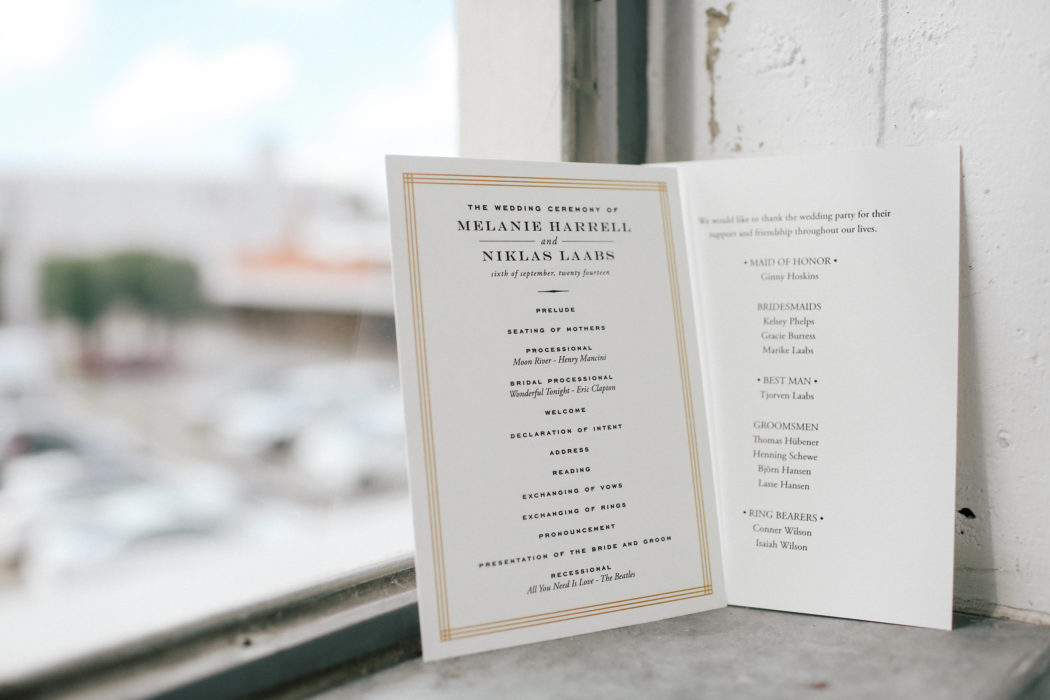 THE WEDDING CEREMONY OF
MELANIE HARRELL
and
NIKLAS LAABS
sixth of september, twenty fourteen
PRELUDE
SEATING OF MOTHERS
PROCESSIONAL
Moon River - Henry Mancini
BRIDAL PROCESSIONAL
Wonderful Tonight - Eric Clapton
WELCOME
DECLARATION OF INTENT
ADDRESS
READING
EXCHANGING OF VOWS
EXCHANGING OF RINGS
PRONOUNCEMENT
PRESENTATION OF THE BRIDE AND GROOM
RECESSIONAL
All You Need Is Love - The Beatles
We would like to thank the wedding party for their
support and friendship throughout our lives.
• MAID OF HONOR •
Ginny Hoskins
BRIDESMAIDS
Kelsey Phelps
Gracie Burress
Marike Laabs
• BEST MAN •
Tjorven Laabs
GROOMSMEN
Thomas Hübener
Henning Schewe
Björn Hansen
Lasse Hansen
• RING BEARERS •
Conner Wilson
Isaiah Wilson